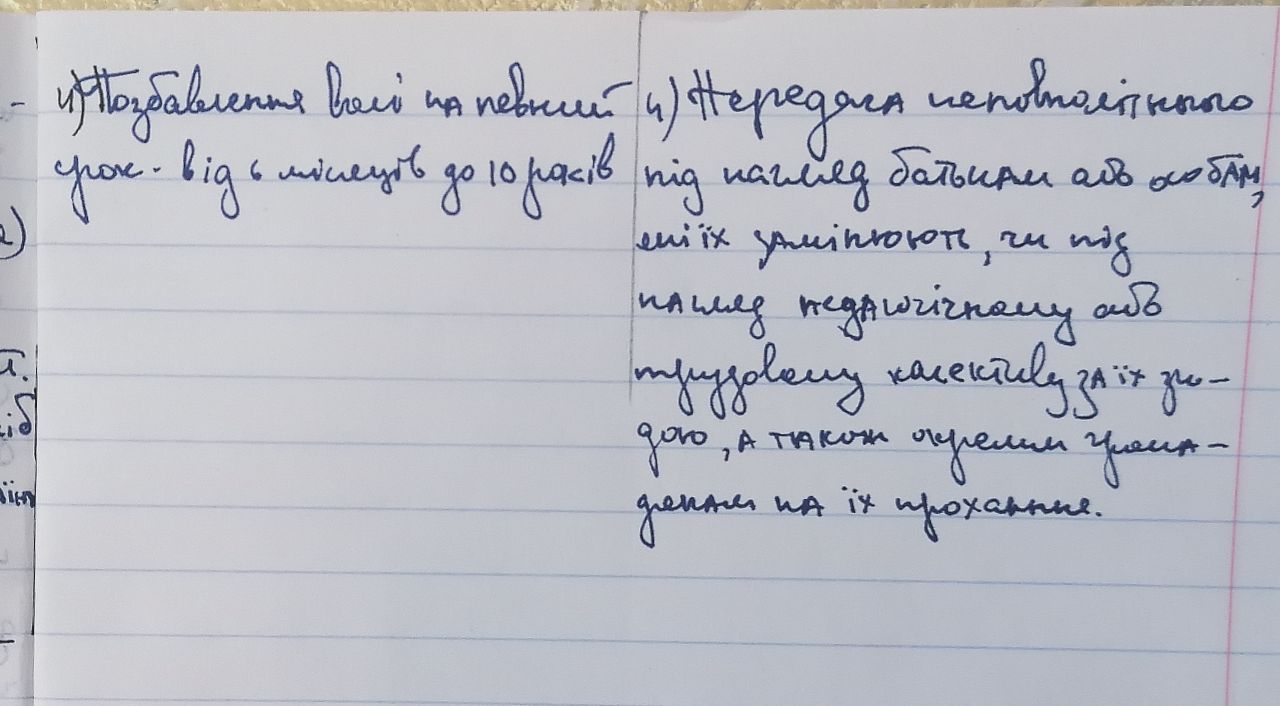 4) Позбавлення волі на певний
срок - від 6 місяців до 10 років
4) Передача неповнолітнього
під нагляд батькам або особам,
які їх замінюють, чи під
нагляд педагогічному або
трудовому колективу за їх зго-
дою, а також окремим грома-
дянам на їх прохання.